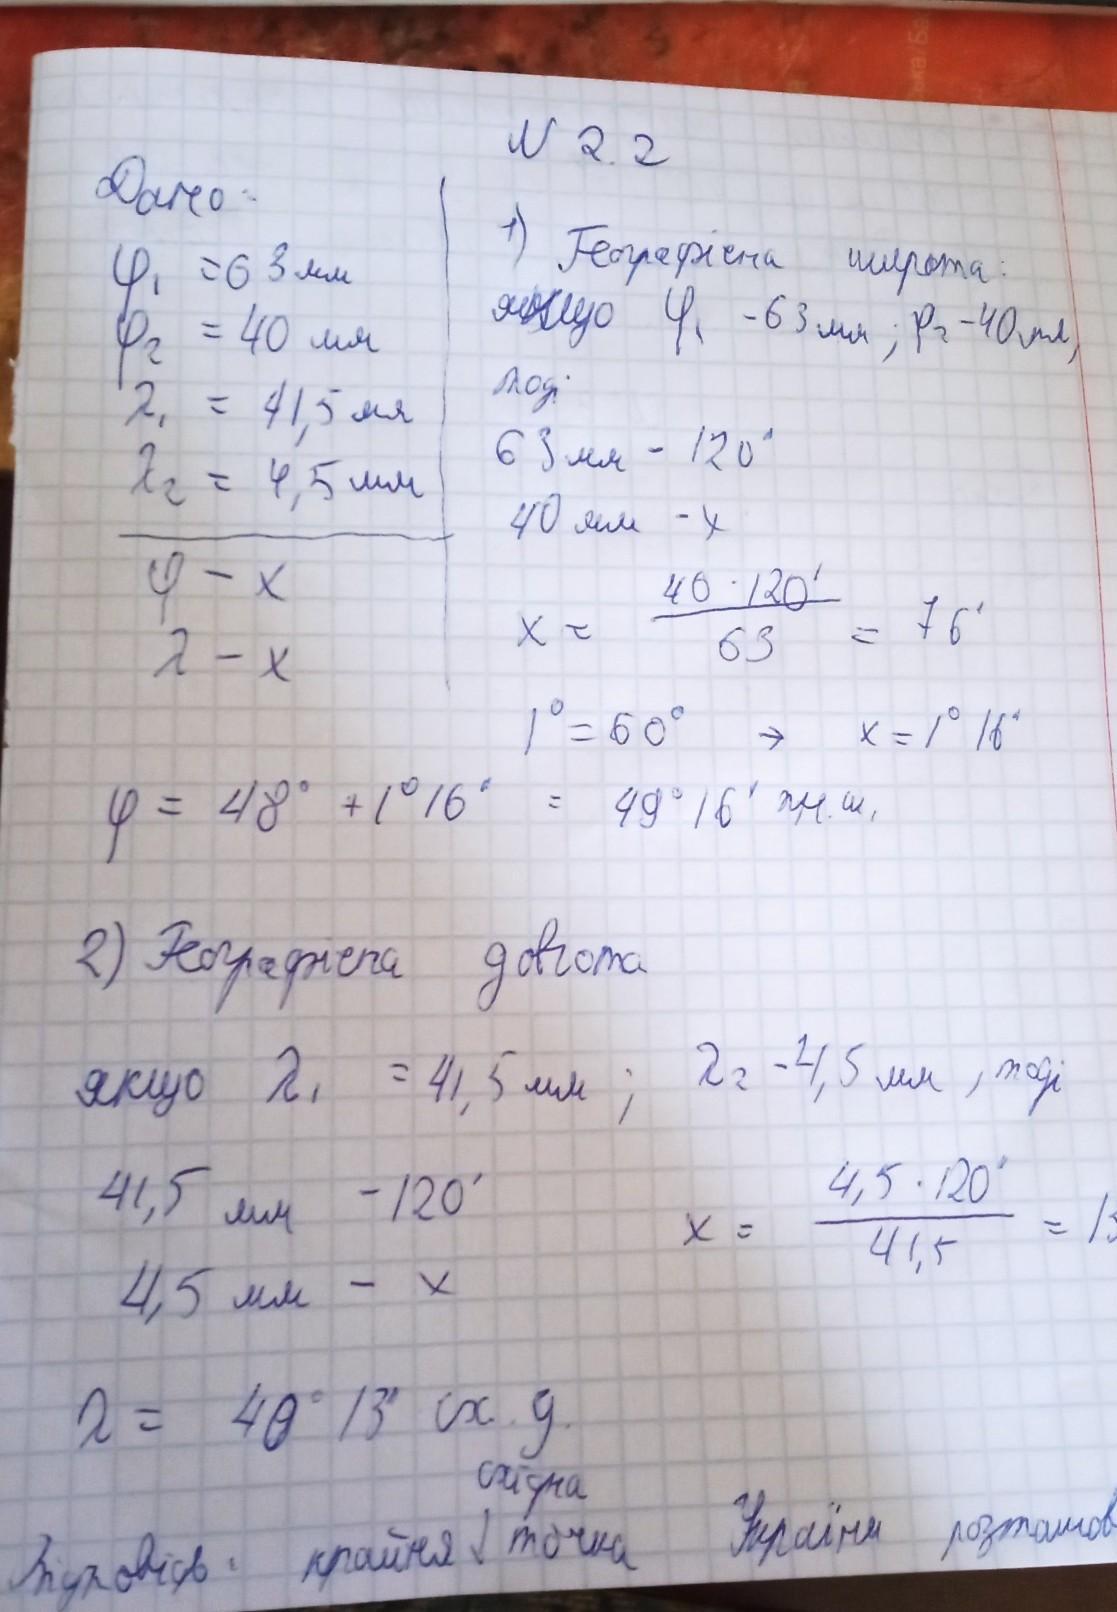 N 2.2
Дано:
φ₁ = 63 мм
φ₂ = 40 мм
λ₁ = 41,5 мм
λ₂ = 4,5 мм
φ – x
λ – x
1) Географічна широта:
якщо φ₁ - 63 мм; φ₂ - 40 мм,
тоді
63 мм - 120'
40 мм - x
x = 40 · 120' / 63 = 76'
1° = 60° → x = 1° 16'
φ = 48° + 1° 16' = 49° 16' пн. ш.
2) Географічна довгота
якщо λ₁ = 41,5 мм; λ₂ - 4,5 мм, тоді
41,5 мм - 120'
4,5 мм - x
x = 4,5 · 120' / 41,5 = 13
λ = 40° 13' сх. д.
східна
Відповідь: крайня ↓ точка України розташов